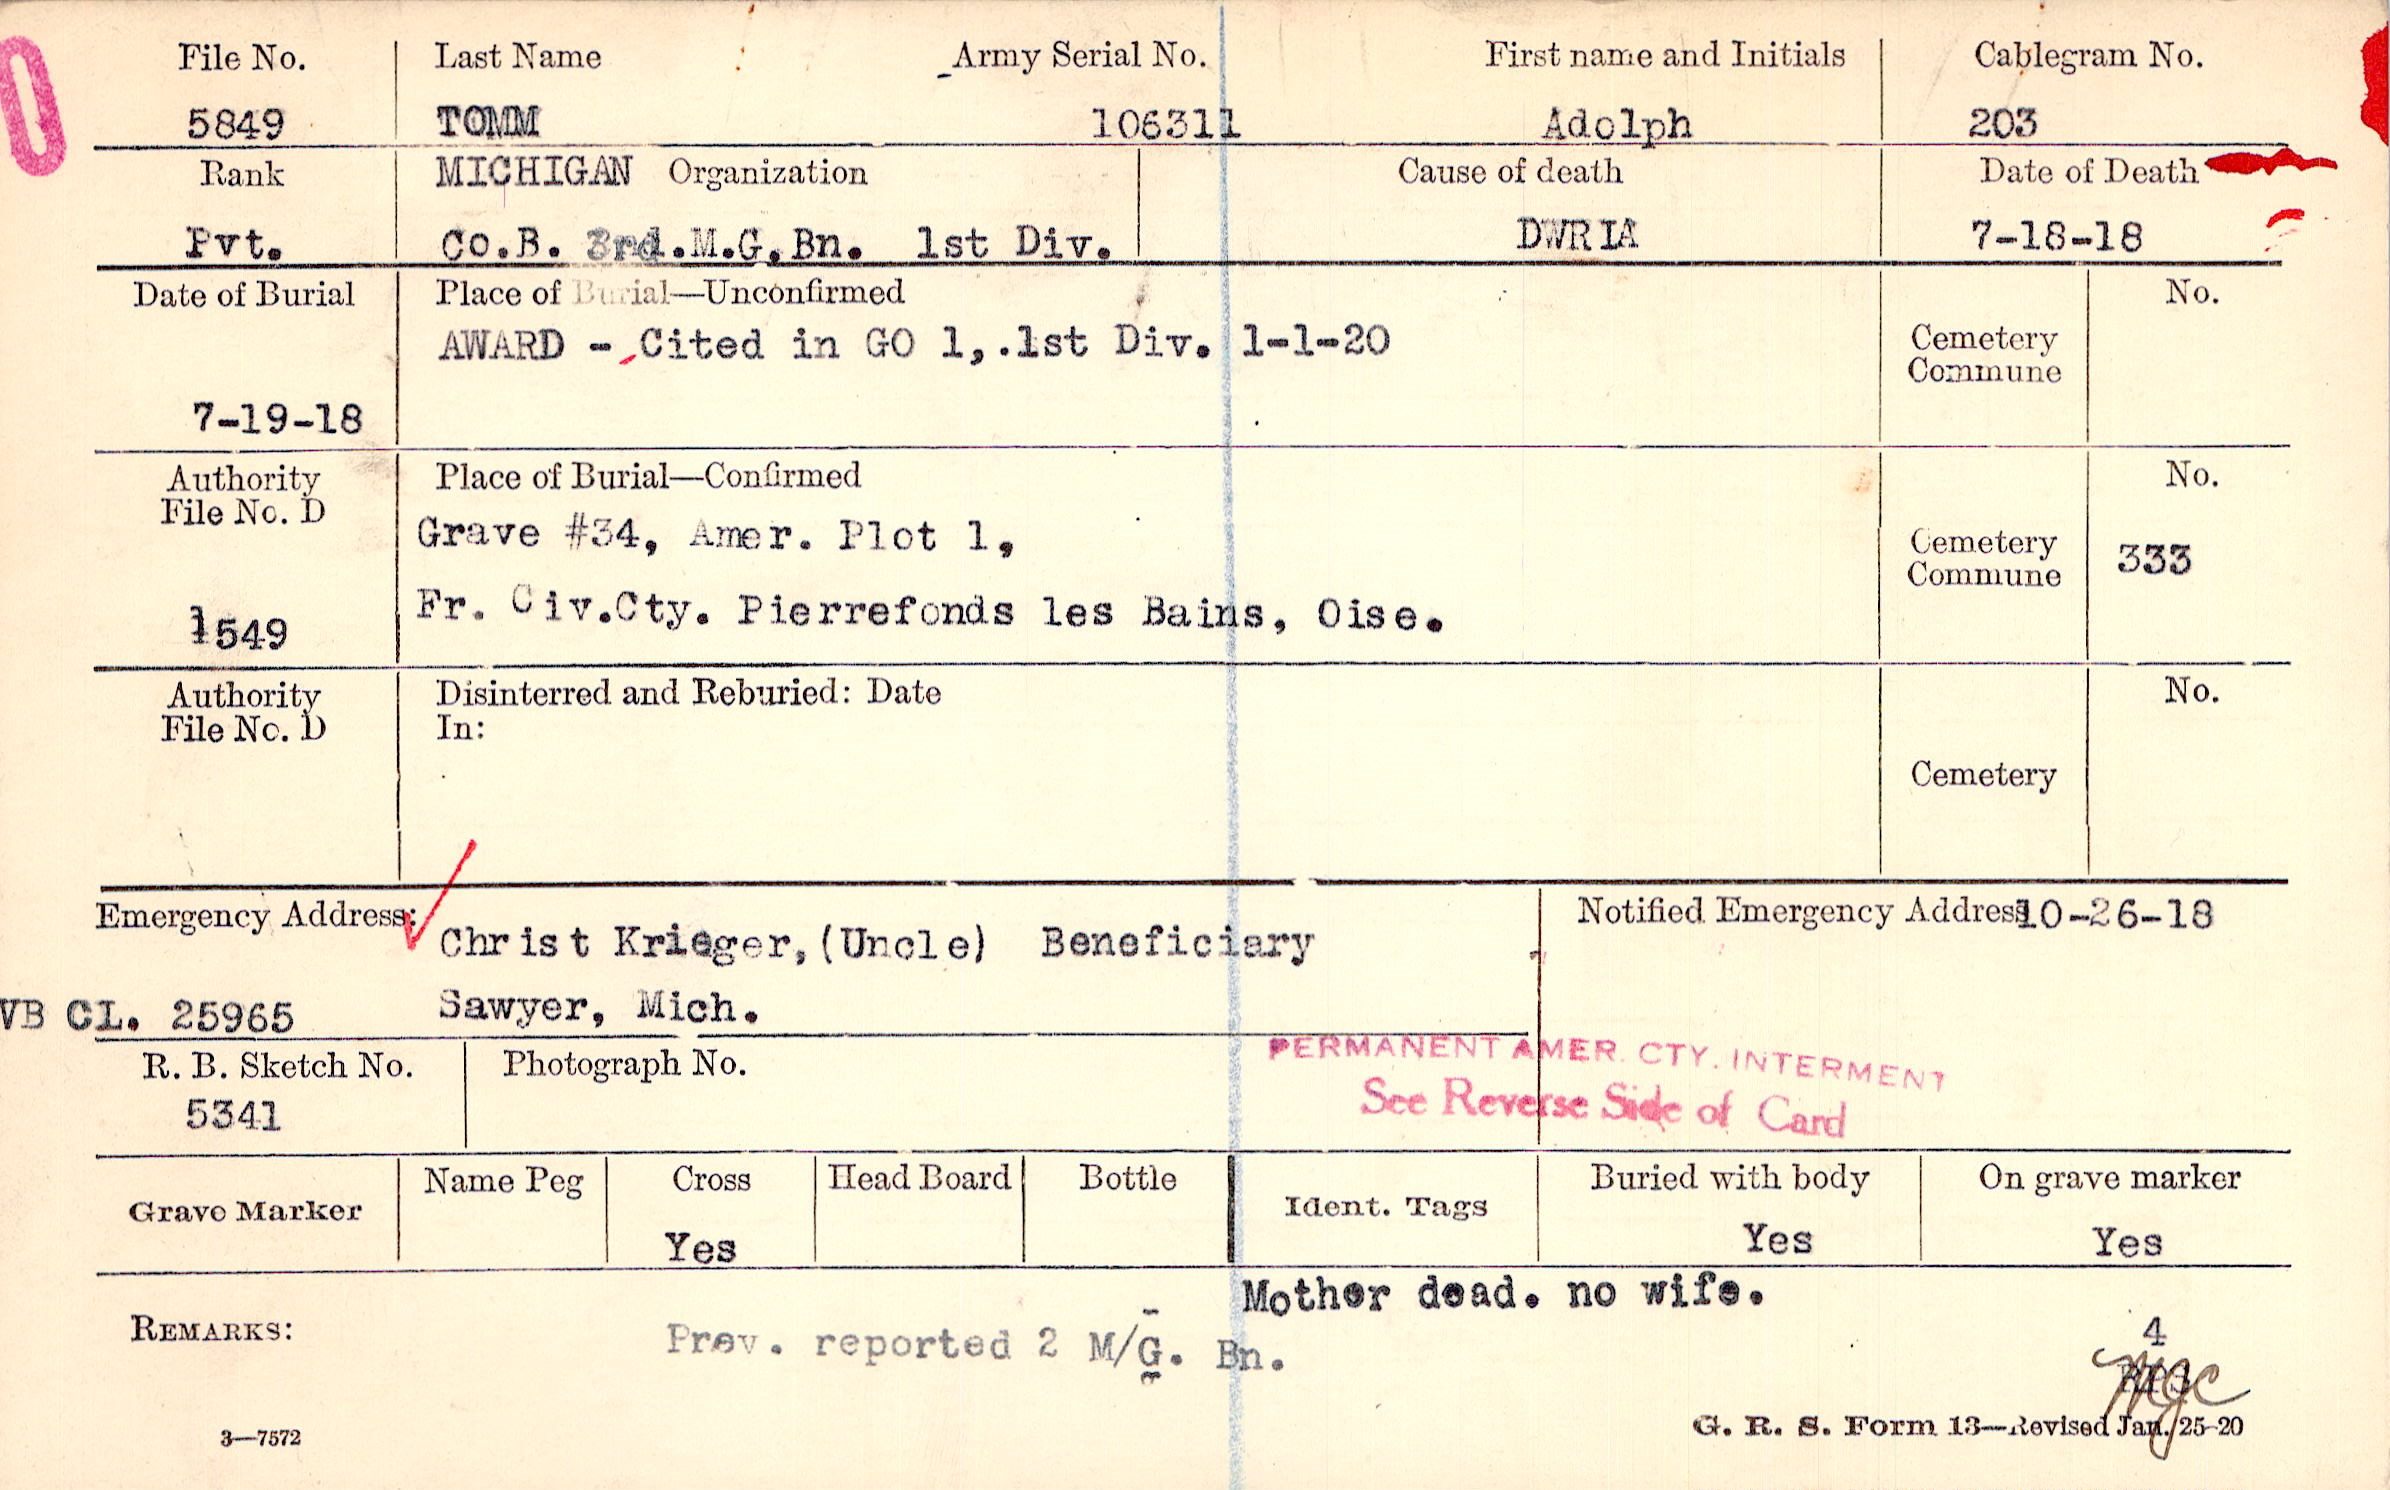 File No. Last Name Army Serial No. First name and Initials Cablegram No.
5849 TOMM 106311 Adolph 203
Rank MICHIGAN Organization Cause of death Date of Death
Pvt. Co.B. 3rd.M.G.Bn. 1st Div. DWRIA 7-18-18
Date of Burial Place of Burial—Unconfirmed No.
AWARD - Cited in GO 1, .1st Div. 1-1-20 Cemetery
Commune
7-19-18
Authority Place of Burial—Confirmed No.
File No. D
Grave #34, Amer. Plot 1, Cemetery
Commune 333
Fr. Civ.Cty. Pierrefonds les Bains, Oise.
1549
Authority Disinterred and Reburied: Date No.
File No. D In:
Cemetery
Emergency Address: Notified Emergency Address 10-26-18
Christ Krieger,(Uncle) Beneficiary
VB CL. 25965 Sawyer, Mich.
R. B. Sketch No. Photograph No. PERMANENT AMER. CTY. INTERMENT
5341 See Reverse Side of Card
Grave Marker Name Peg Cross Head Board Bottle Ident. Tags Buried with body On grave marker
Yes Yes Yes
Mother dead. no wife.
REMARKS: Prev. reported 2 M/G. Bn. 4
3—7572 G. R. S. Form 13—Revised Jan. 25-20